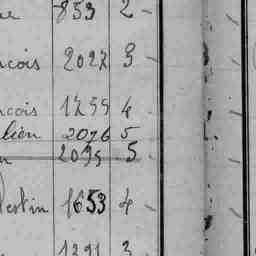 853 2
ncois 2027 3
ncois 1799 4
lien 2076 5
2095 5
lestin 1653 4
1391 3